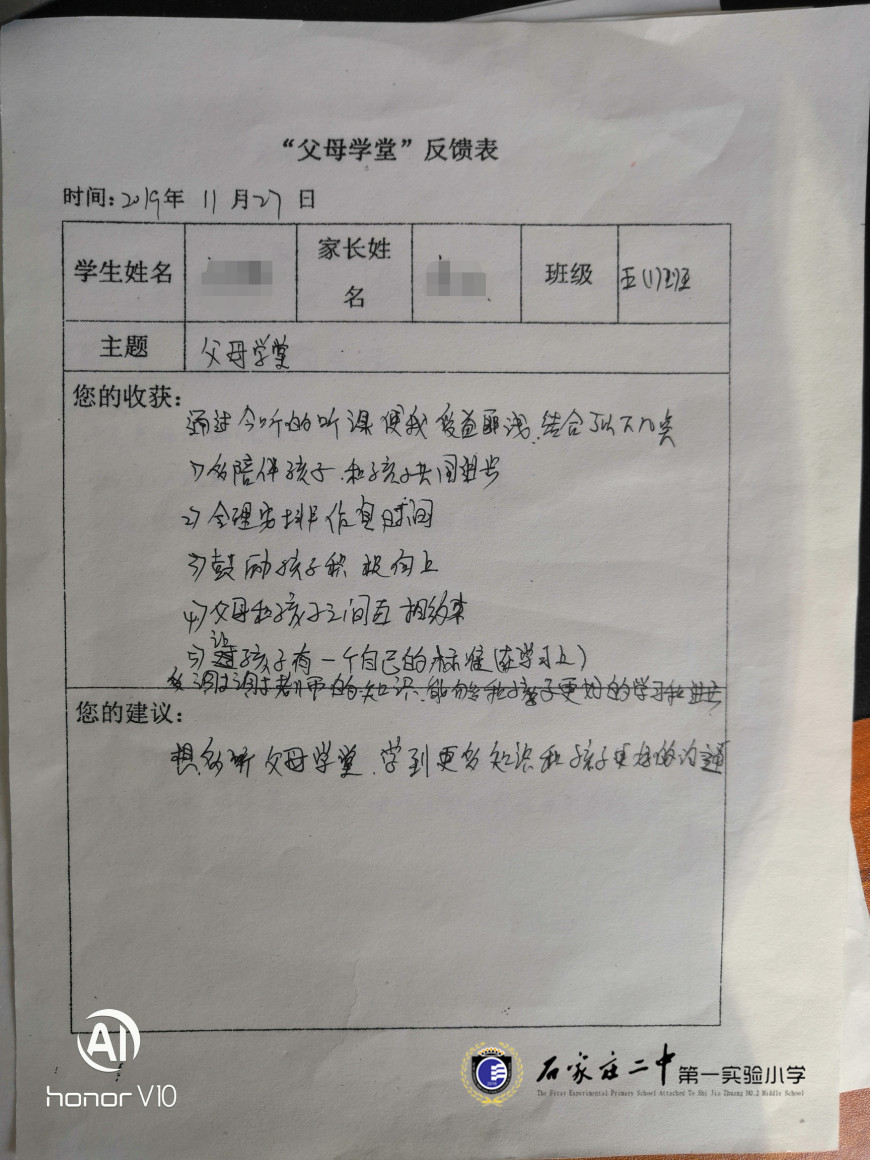 “父母学堂”反馈表
时间：2019年 11月27日
学生姓名
家长姓名
班级
五(1)班
主题
父母学堂
您的收获：
通过今听的听课使我受益匪浅.结合以下几类
1)多陪伴孩子.和孩子共同进步
2)合理安排作息时间
3)鼓励孩子积极向上
4)父母和孩子之间互相约束
5)让孩子有一个自己的标准(在学习上)
老师的知识.能够和孩子更好的学习和进步
您的建议：
想多听父母学堂.学到更多知识和孩子更好的沟通
AI
honor V10
石家庄二中第一实验小学
The First Experimental Primary School Attached To Shi Jia Zhuang NO.2 Middle School